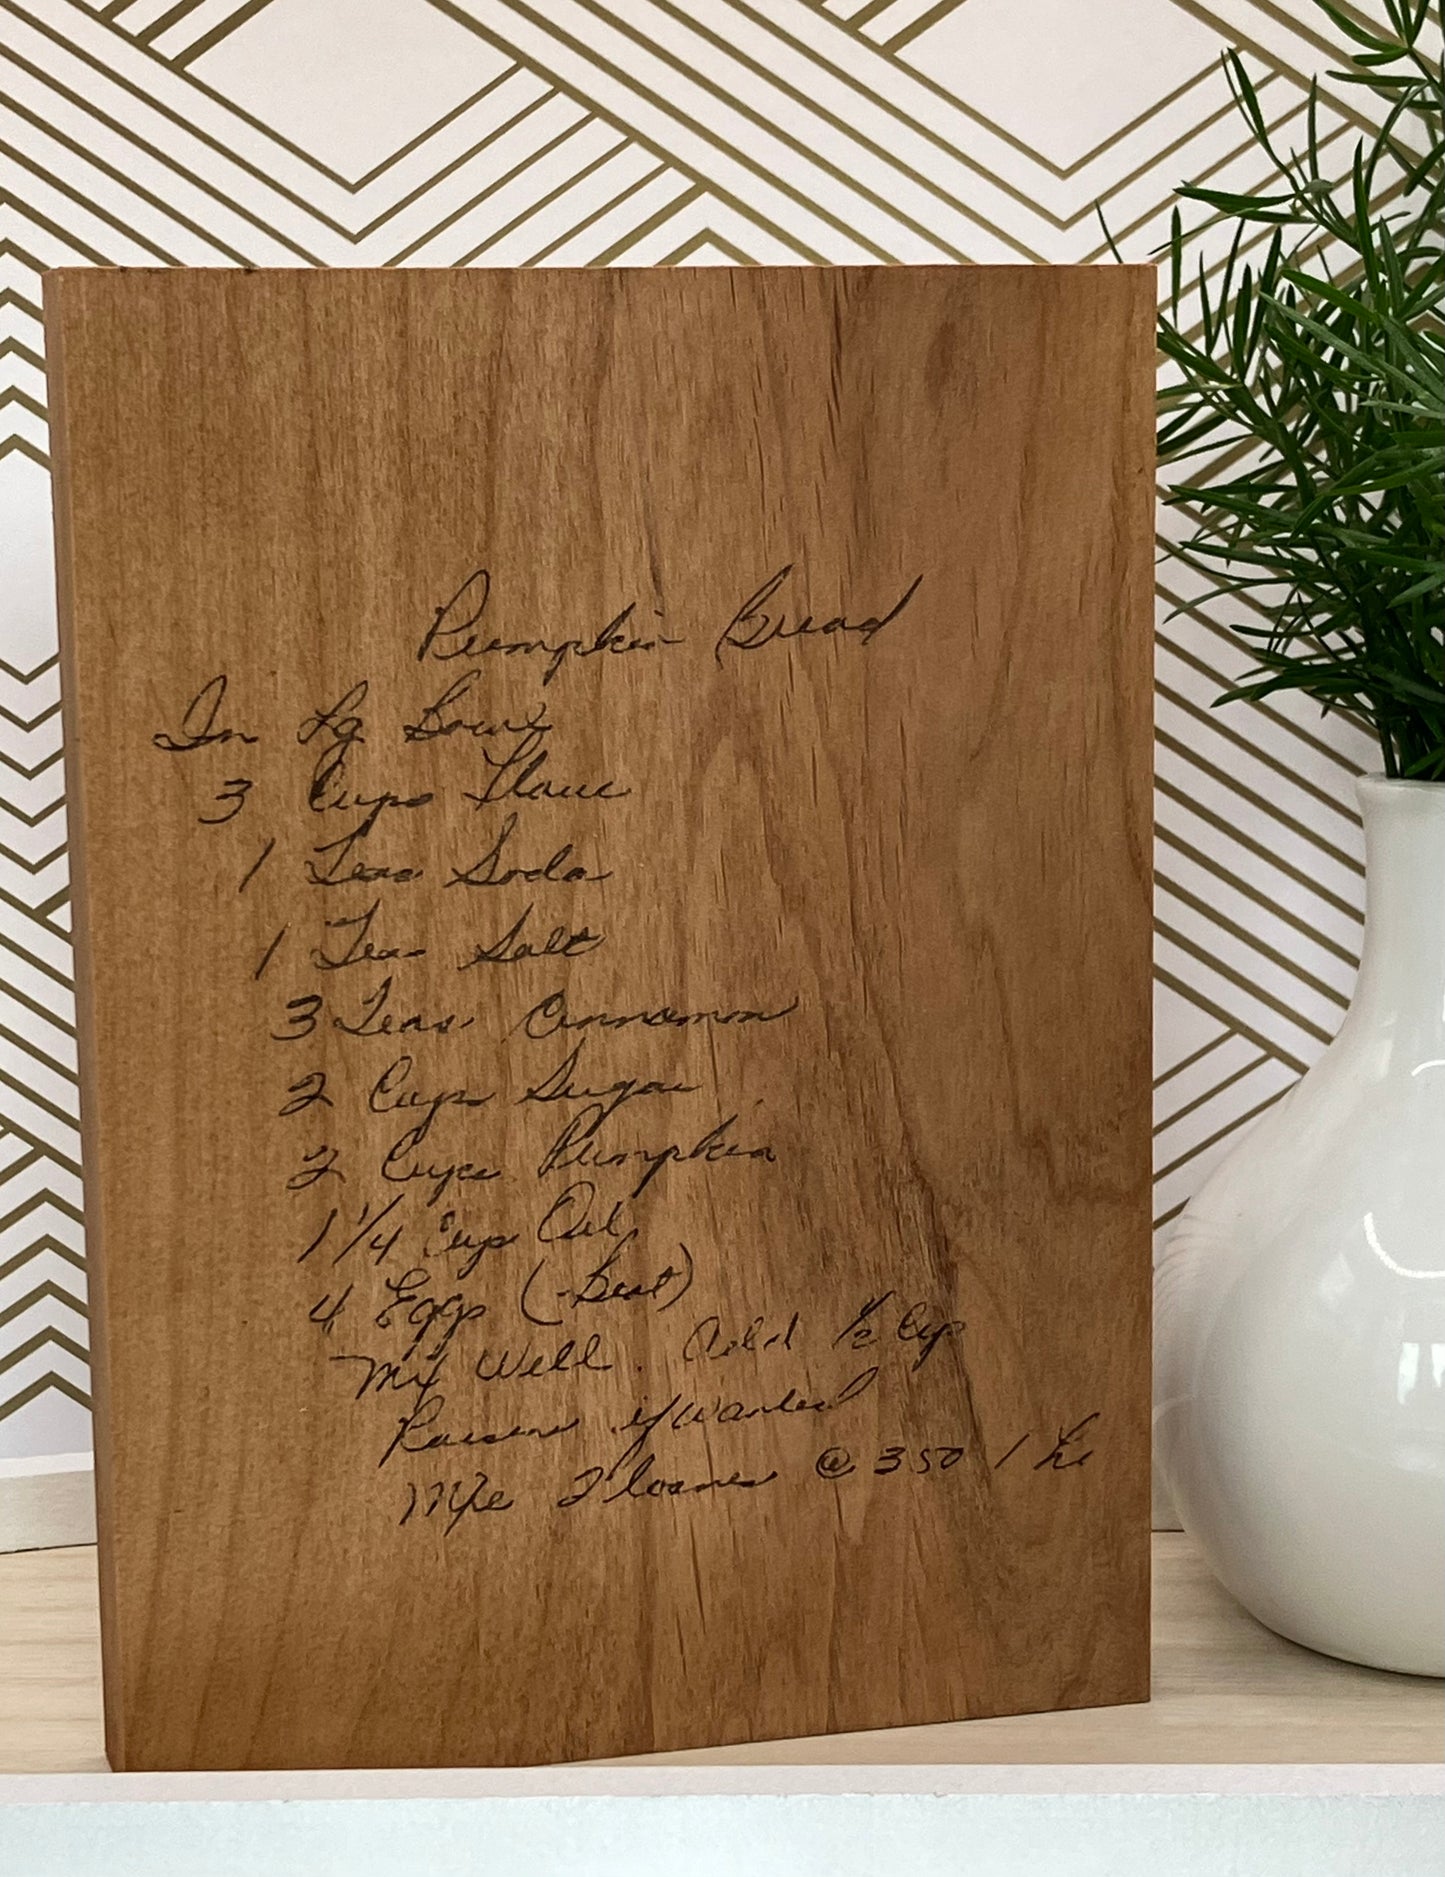 Pumpkin Bread
In Lg Bowl
3 Cups Flour
1 Teas Soda
1 Teas Salt
3 Teas Cinnamon
2 Cups Sugar
2 Cups Pumpkin
1 1/4 Cup Oil
4 Eggs (-Beat)
Mix Well. Add 1/2 Cup
Raisins if wanted
2 loaves @ 350 1 hr